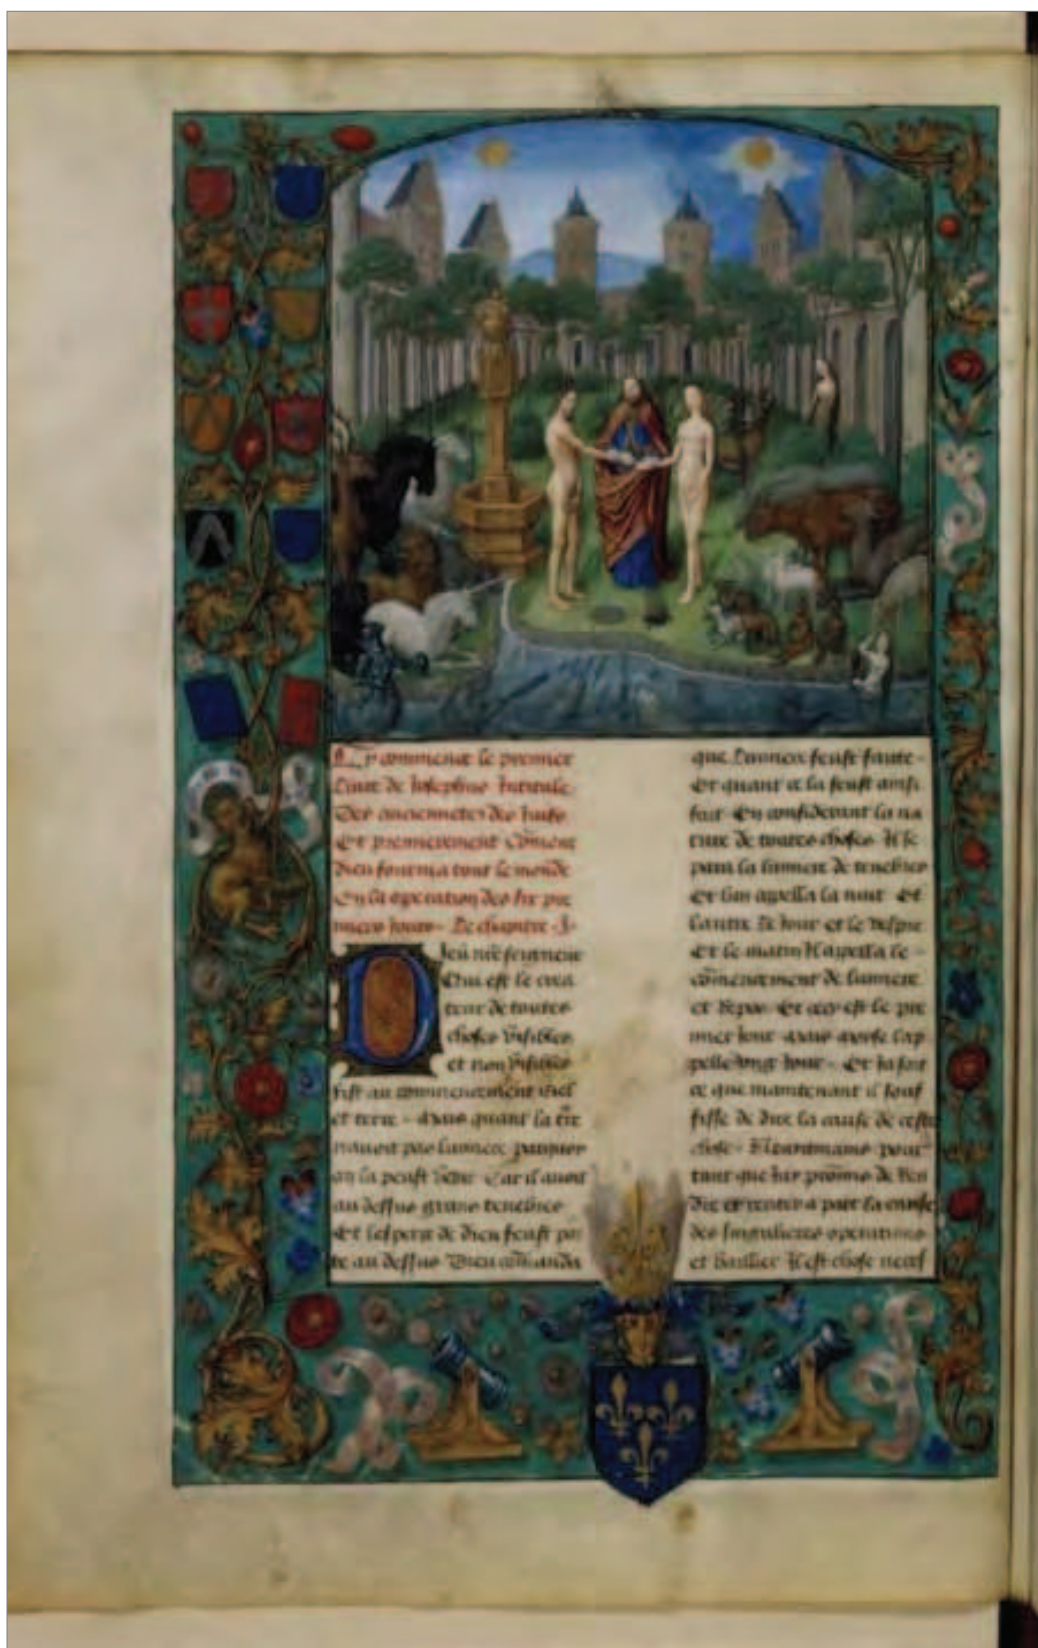 Cy commence le premier
Liure de Josephus Intitule
Des anciennetes des Juifs
Et premierement Cōment
dieu fourma tout le monde
En la operation des six pre
miers Jours. Le chapitre .I.
Dieu nr̄e seigneur
Qui est le crea
teur de toutes
choses visibles
et non visibles
fist au commencement ciel
et terre. Mais quant la tr̄e
nauoit pas lumiere
on la peust veoir Car il auoit
au dessus grans tenebres
Et lesperit de dieu feust por
te au dessus Dieu cōmanda
que Lumiere feust faicte.
Et quant ce la feust ainsi
fait En considerant la na
ture de toutes choses Il se
para la lumiere de tenebres
Et lun apella la nuit Et
lautre Le Jour et le vespre
Et le matin Il apella le
cōmencement de lumiere
et Et cecy est le pre
mier Jour Mais moyse lap
pelle vng Jour. Et Ja soit
ce que maintenant il souf
fisse de dire la cause de ceste
chose. pour
tant que promis de
dre et traiter a part la cause
des singulieres operations
et baillier Il est chose necess